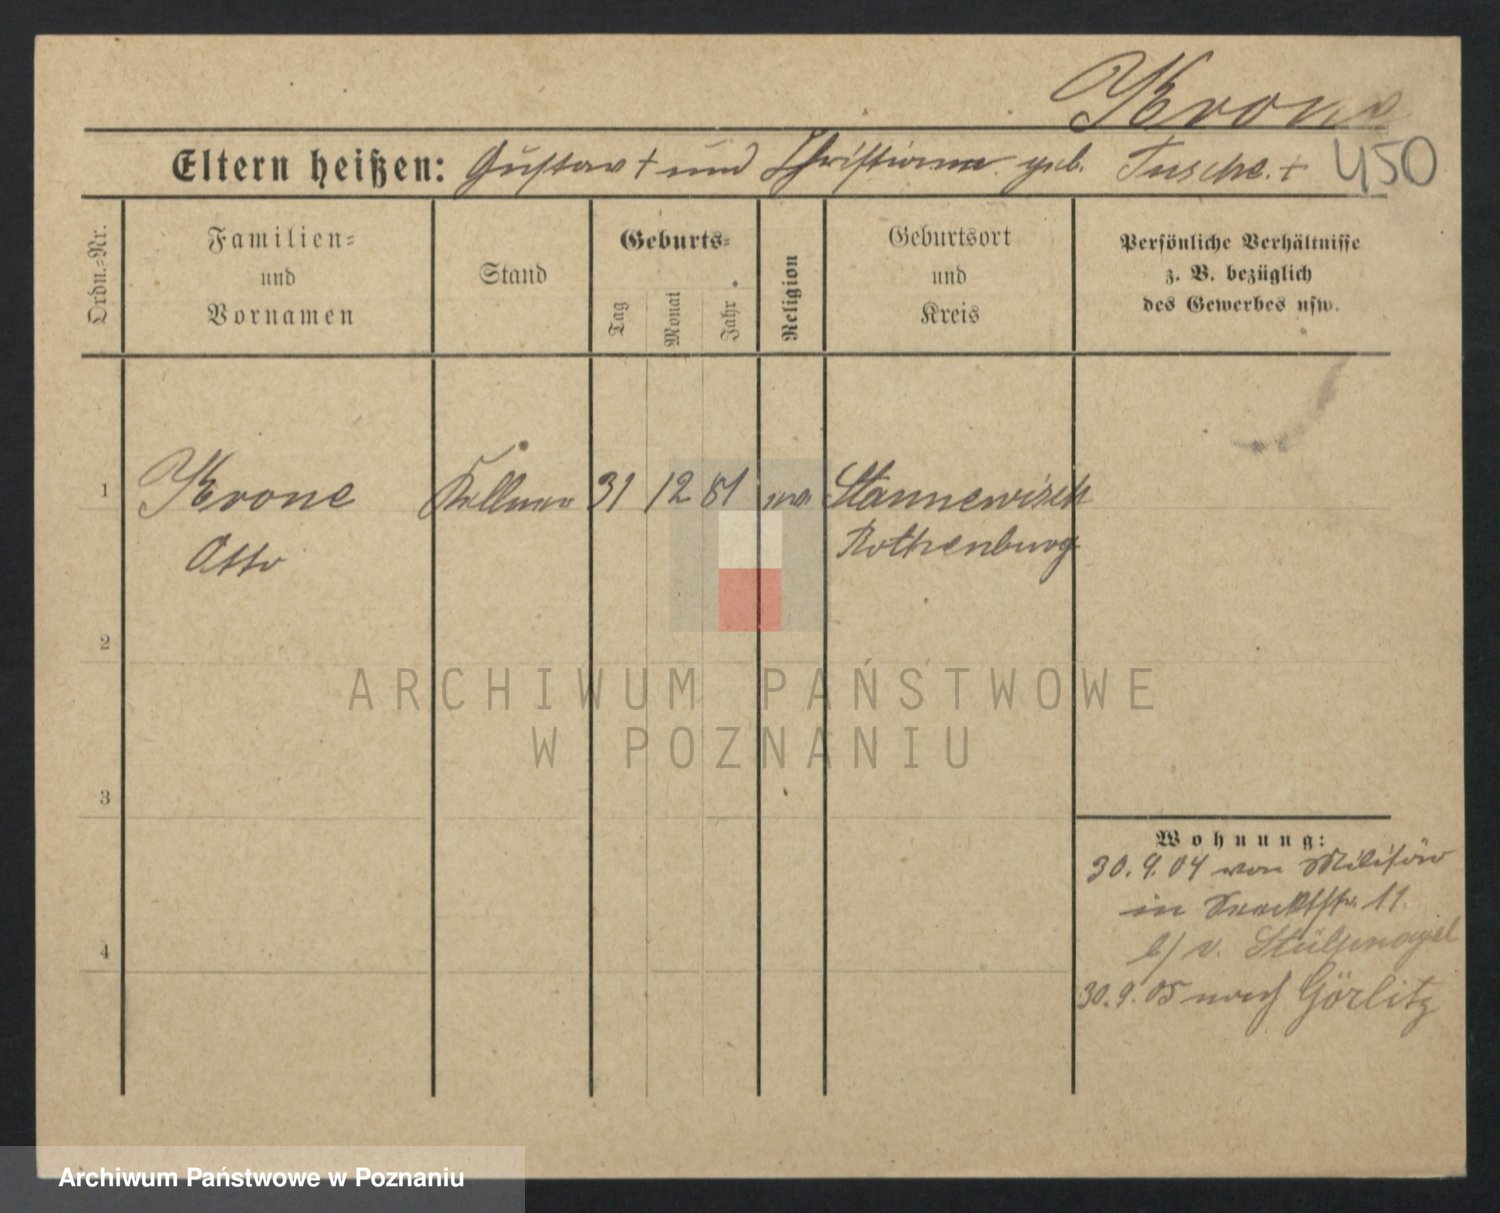 Krone
Eltern heißen: Gustav † und Christiane geb. Tusche. † 450
Ordn.=Nr.
Familien=
und
Vornamen
Stand
Geburts=
Tag
Monat
Jahr
Religion
Geburtsort
und
Kreis
Persönliche Verhältnisse
z. B. bezüglich
des Gewerbes usw.
1 Krone Kellner 31 12 81 Stannewisch
Otto Rothenburg
2
ARCHIWUM PAŃSTWOWE
W POZNANIU
3
Wohnung:
30.9.04 von Militär
in 11.
b/ v. Stülpnagel
4
30.9.05 nach Görlitz
Archiwum Państwowe w Poznaniu